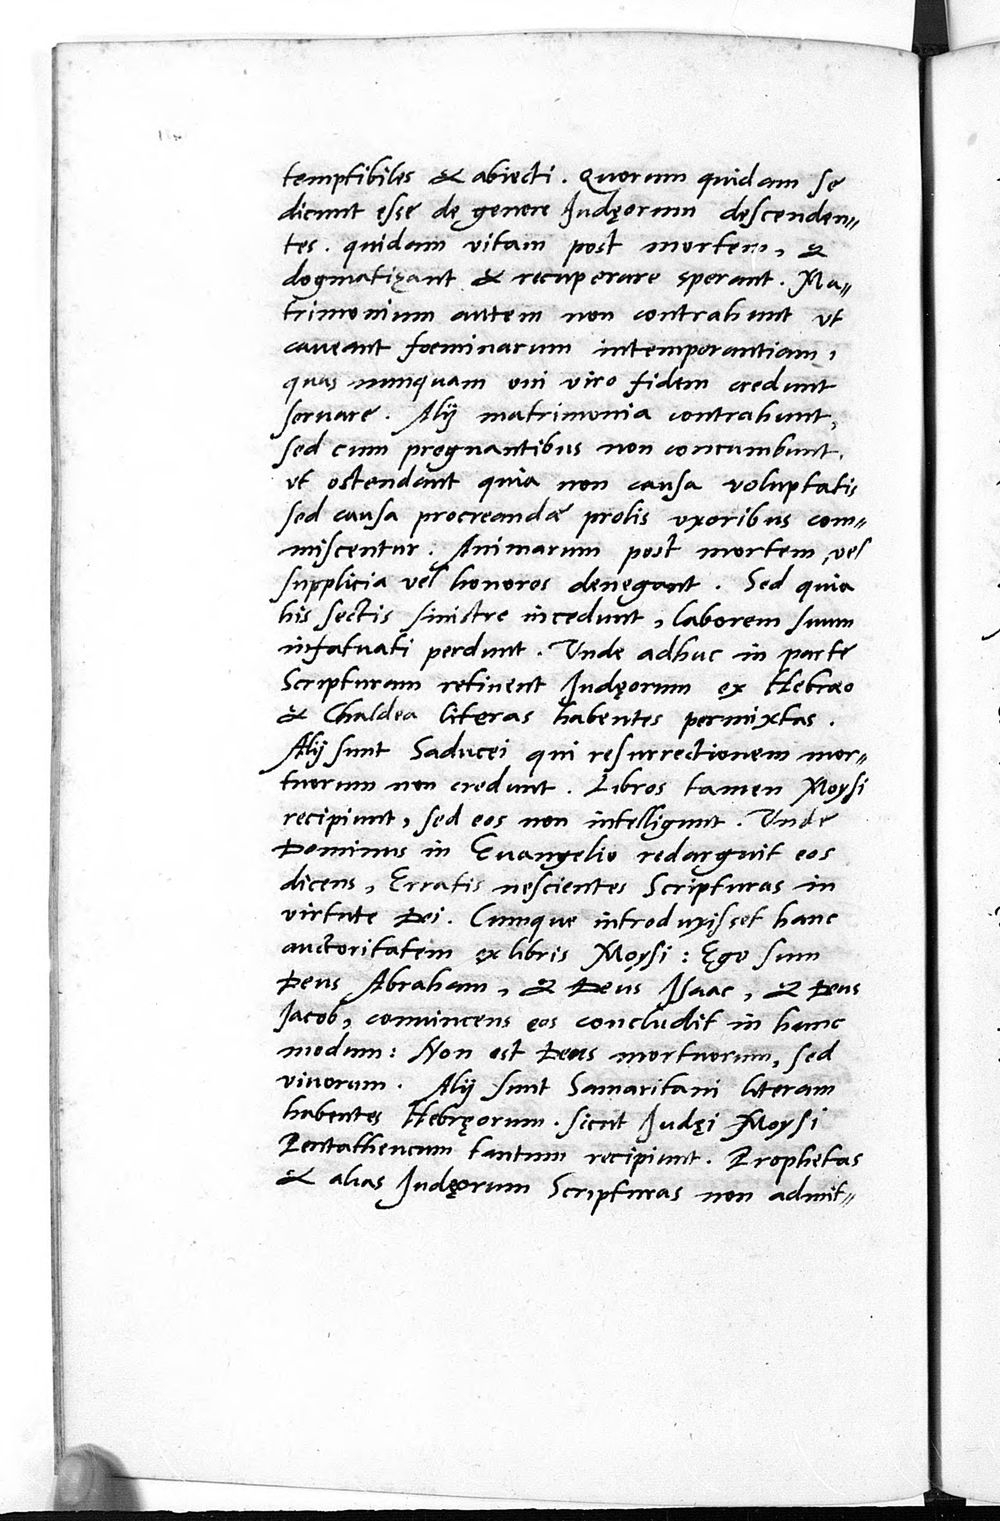 temptibiles & abiecti. Quorum quidam se
dicunt esse de genere Iudęorum descenden=
tes. quidam vitam post mortem, &
dogmatiȥant & recuperare sperant. Ma=
trimonium autem non contrahunt vt
caueant foeminarum intemperantiam,
quas nunquam vni viro fidem credunt
seruare. Alij matrimonia contrahunt,
sed cum pregnantibus non concumbunt,
vt ostendant quia non causa voluptatis
sed causa procreandæ prolis vxoribus com=
miscentur: Animarum post mortem vel
supplicia vel honores denegant. Sed quia
his sectis sinistre incedunt, laborem suum
infatuati perdunt. Unde adhuc in parte
Scripturam retinent Iudęorum ex Hebræo
& Chaldea literas habentes permixtas.
Alij sunt Saducei qui resurrectionem mor=
tuorum non credunt. Libros tamen Moysi
recipiunt, sed eos non intelligunt. Unde
Dominus in Euangelio redarguit eos
dicens, Erratis nescientes Scripturas in
virtute Dei. Cumque introduxisset hanc
auctoritatem ex libris Moysi: Ego sum
Deus Abraham, & Deus Isaac, & Deus
Iacob, conuincens eos concludit in hunc
modum: Non est Deus mortuorum, sed
viuorum. Alij sunt Samaritani literam
habentes Hebręorum. sicut Iudęi Moysi
Pentatheucum tantum recipiunt. Prophetas
& alias Iudęorum Scripturas non admit=